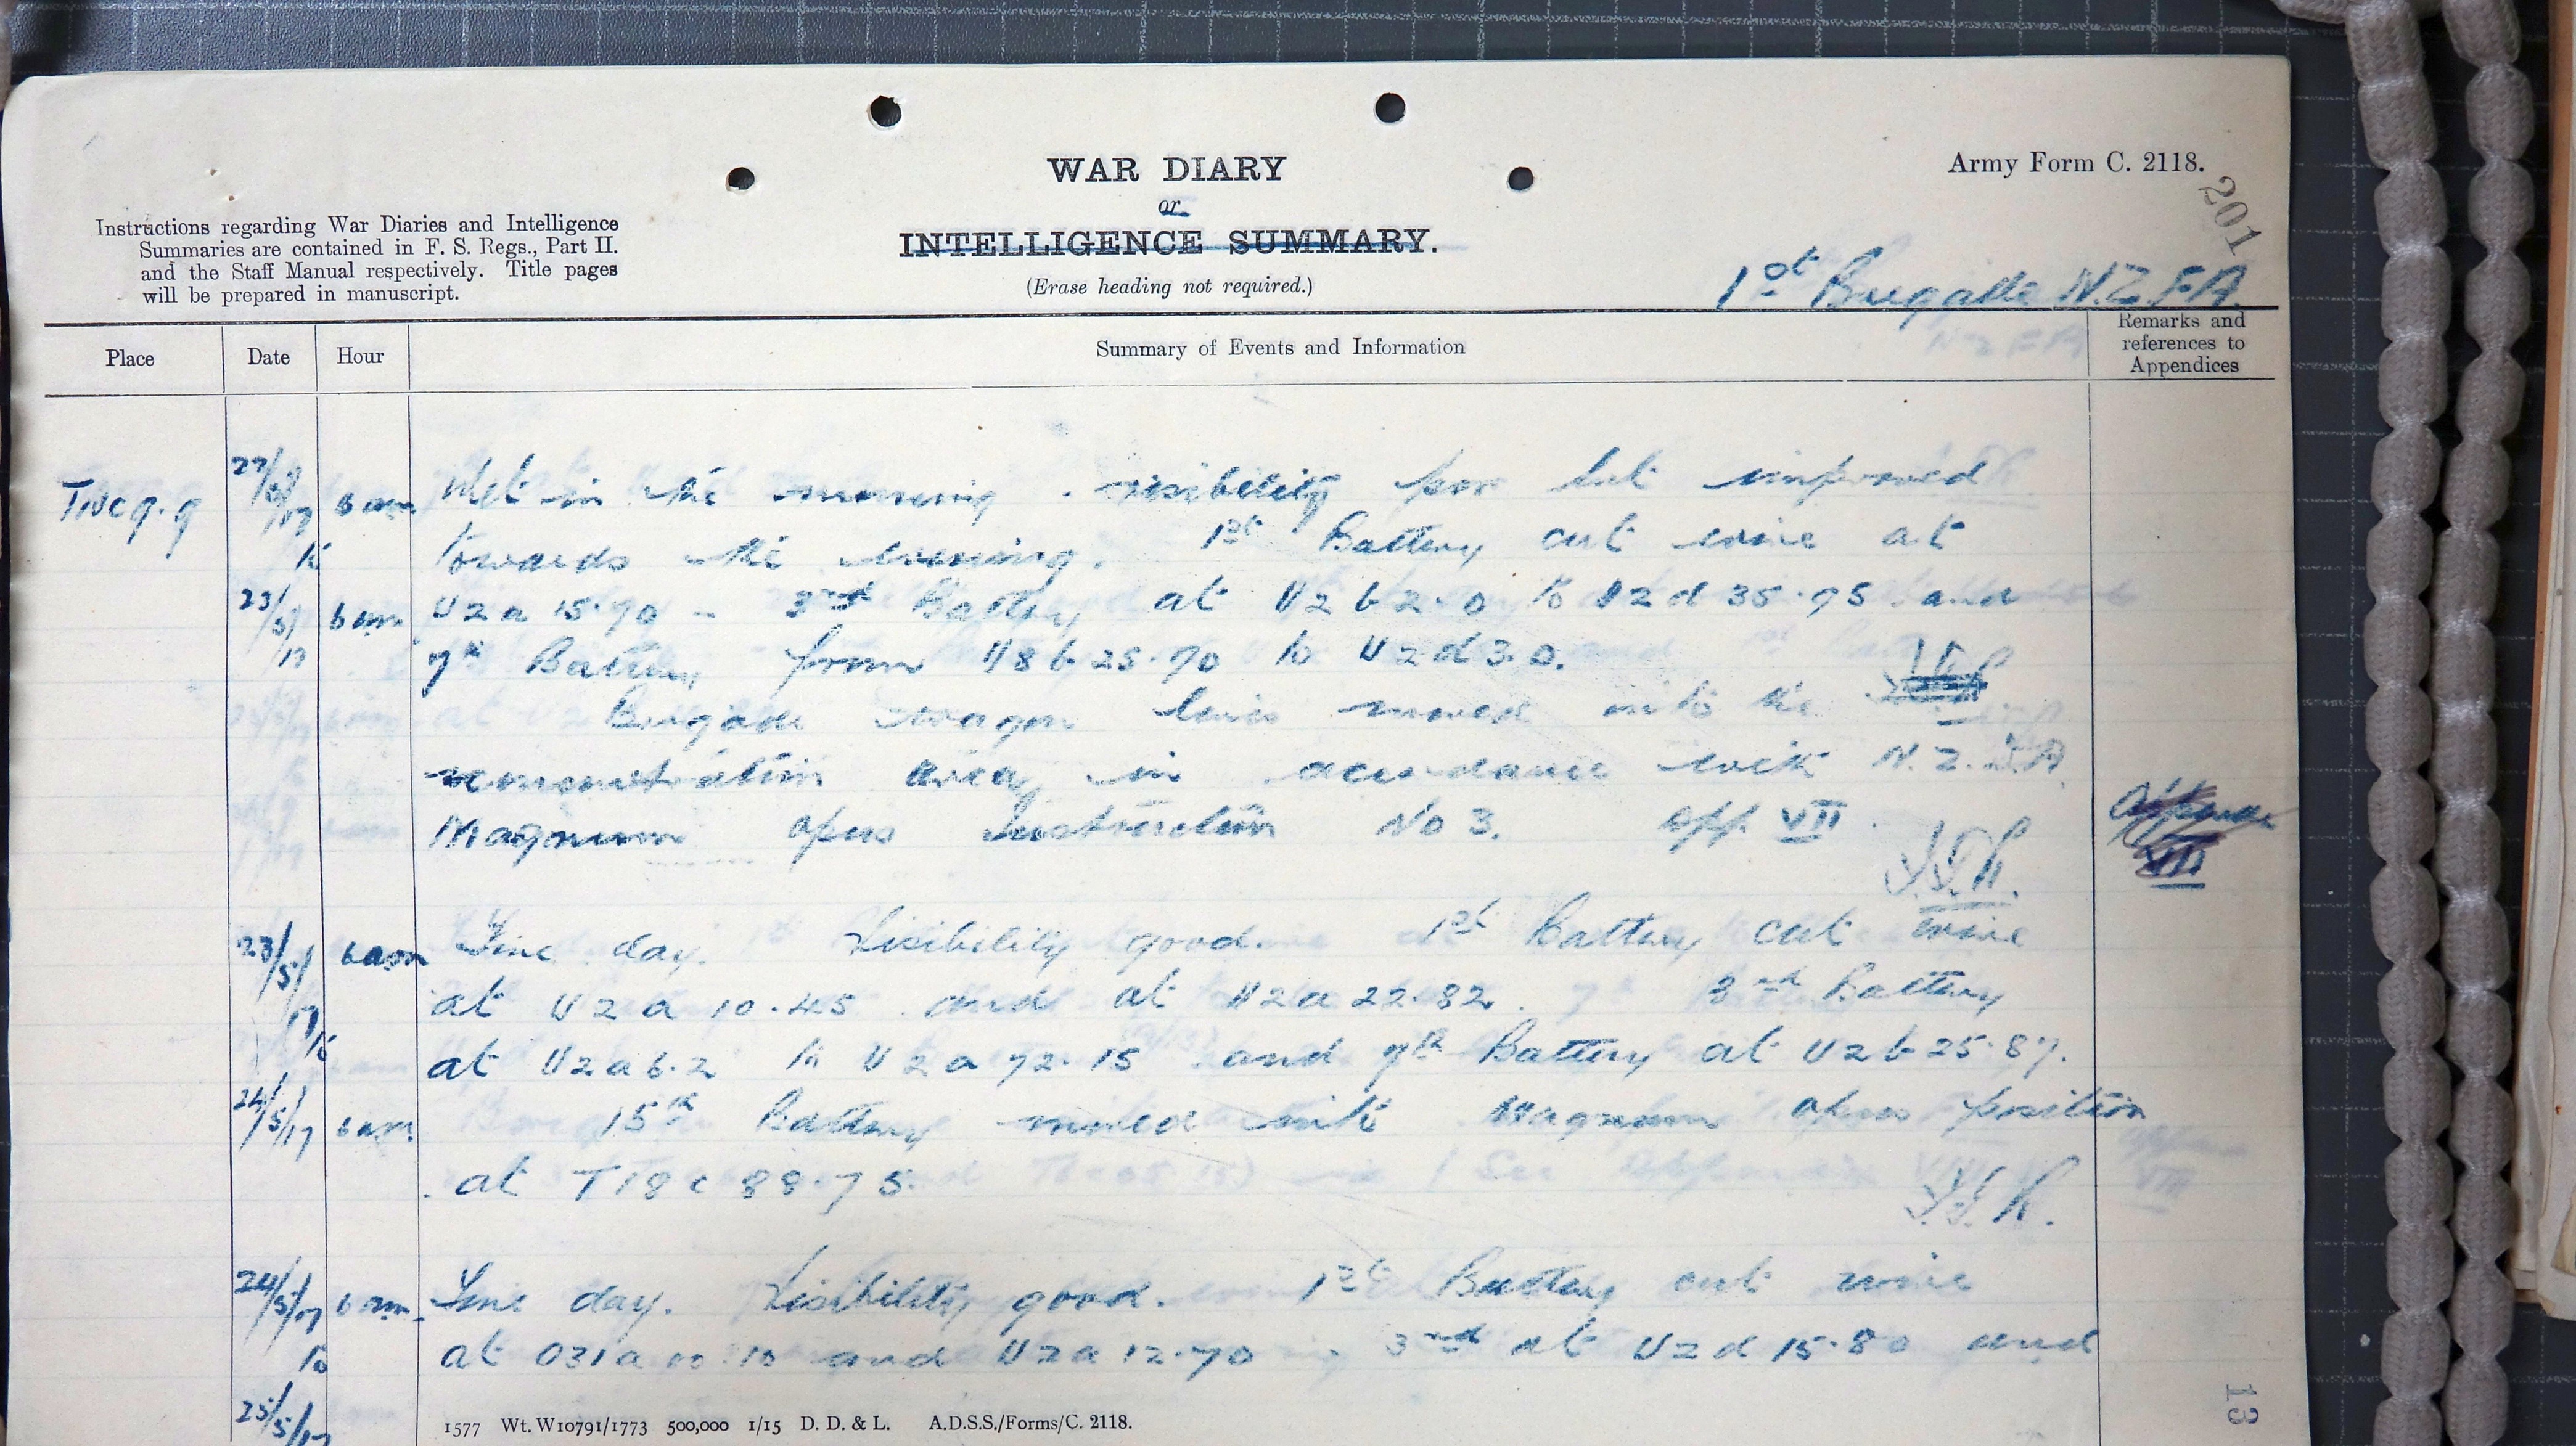 WAR DIARY
or
INTELLIGENCE SUMMARY.
(Erase heading not required.)
Army Form C. 2118.
201
Instructions regarding War Diaries and Intelligence
Summaries are contained in F. S. Regs., Part II.
and the Staff Manual respectively. Title pages
will be prepared in manuscript.
1st Brigade N.Z.F.A.
Place Date Hour Summary of Events and Information Remarks and references to Appendices
22/5/17 6 am Wet in the morning. visibility poor but improved
to towards the evening. 1st Battery cut wire at
23/5/17 6 am U2a 15.70 - 3rd Battery at U2b2.0 to U2d 35.95 and
7th Battery from U8b25.70 to U2d3.0.
Brigade wagon lines moved into the
area in accordance with N.Z.D.A.
Magnum opus Instruction No 3. App VII
Appendix VII
23/5/17 6 am Fine day. Visibility good. 1st Battery cut wire
at U2a 10.45 and at U2a 22.82. 3rd Battery
to at U2a6.2 to U2a72.15 and 7th Battery at U2b25.87.
24/5/17 6 am 15th Battery moved into Magnum opus position
at T18c88.75.
24/5/17 6 am Fine day. Visibility good. 1st Battery cut wire
to at O31a00.10 and U2a12.70 - 3rd at U2d15.80 and
25/5/17
1577 Wt. W10791/1773 500,000 1/15 D. D. & L. A.D.S.S./Forms/C. 2118.
13